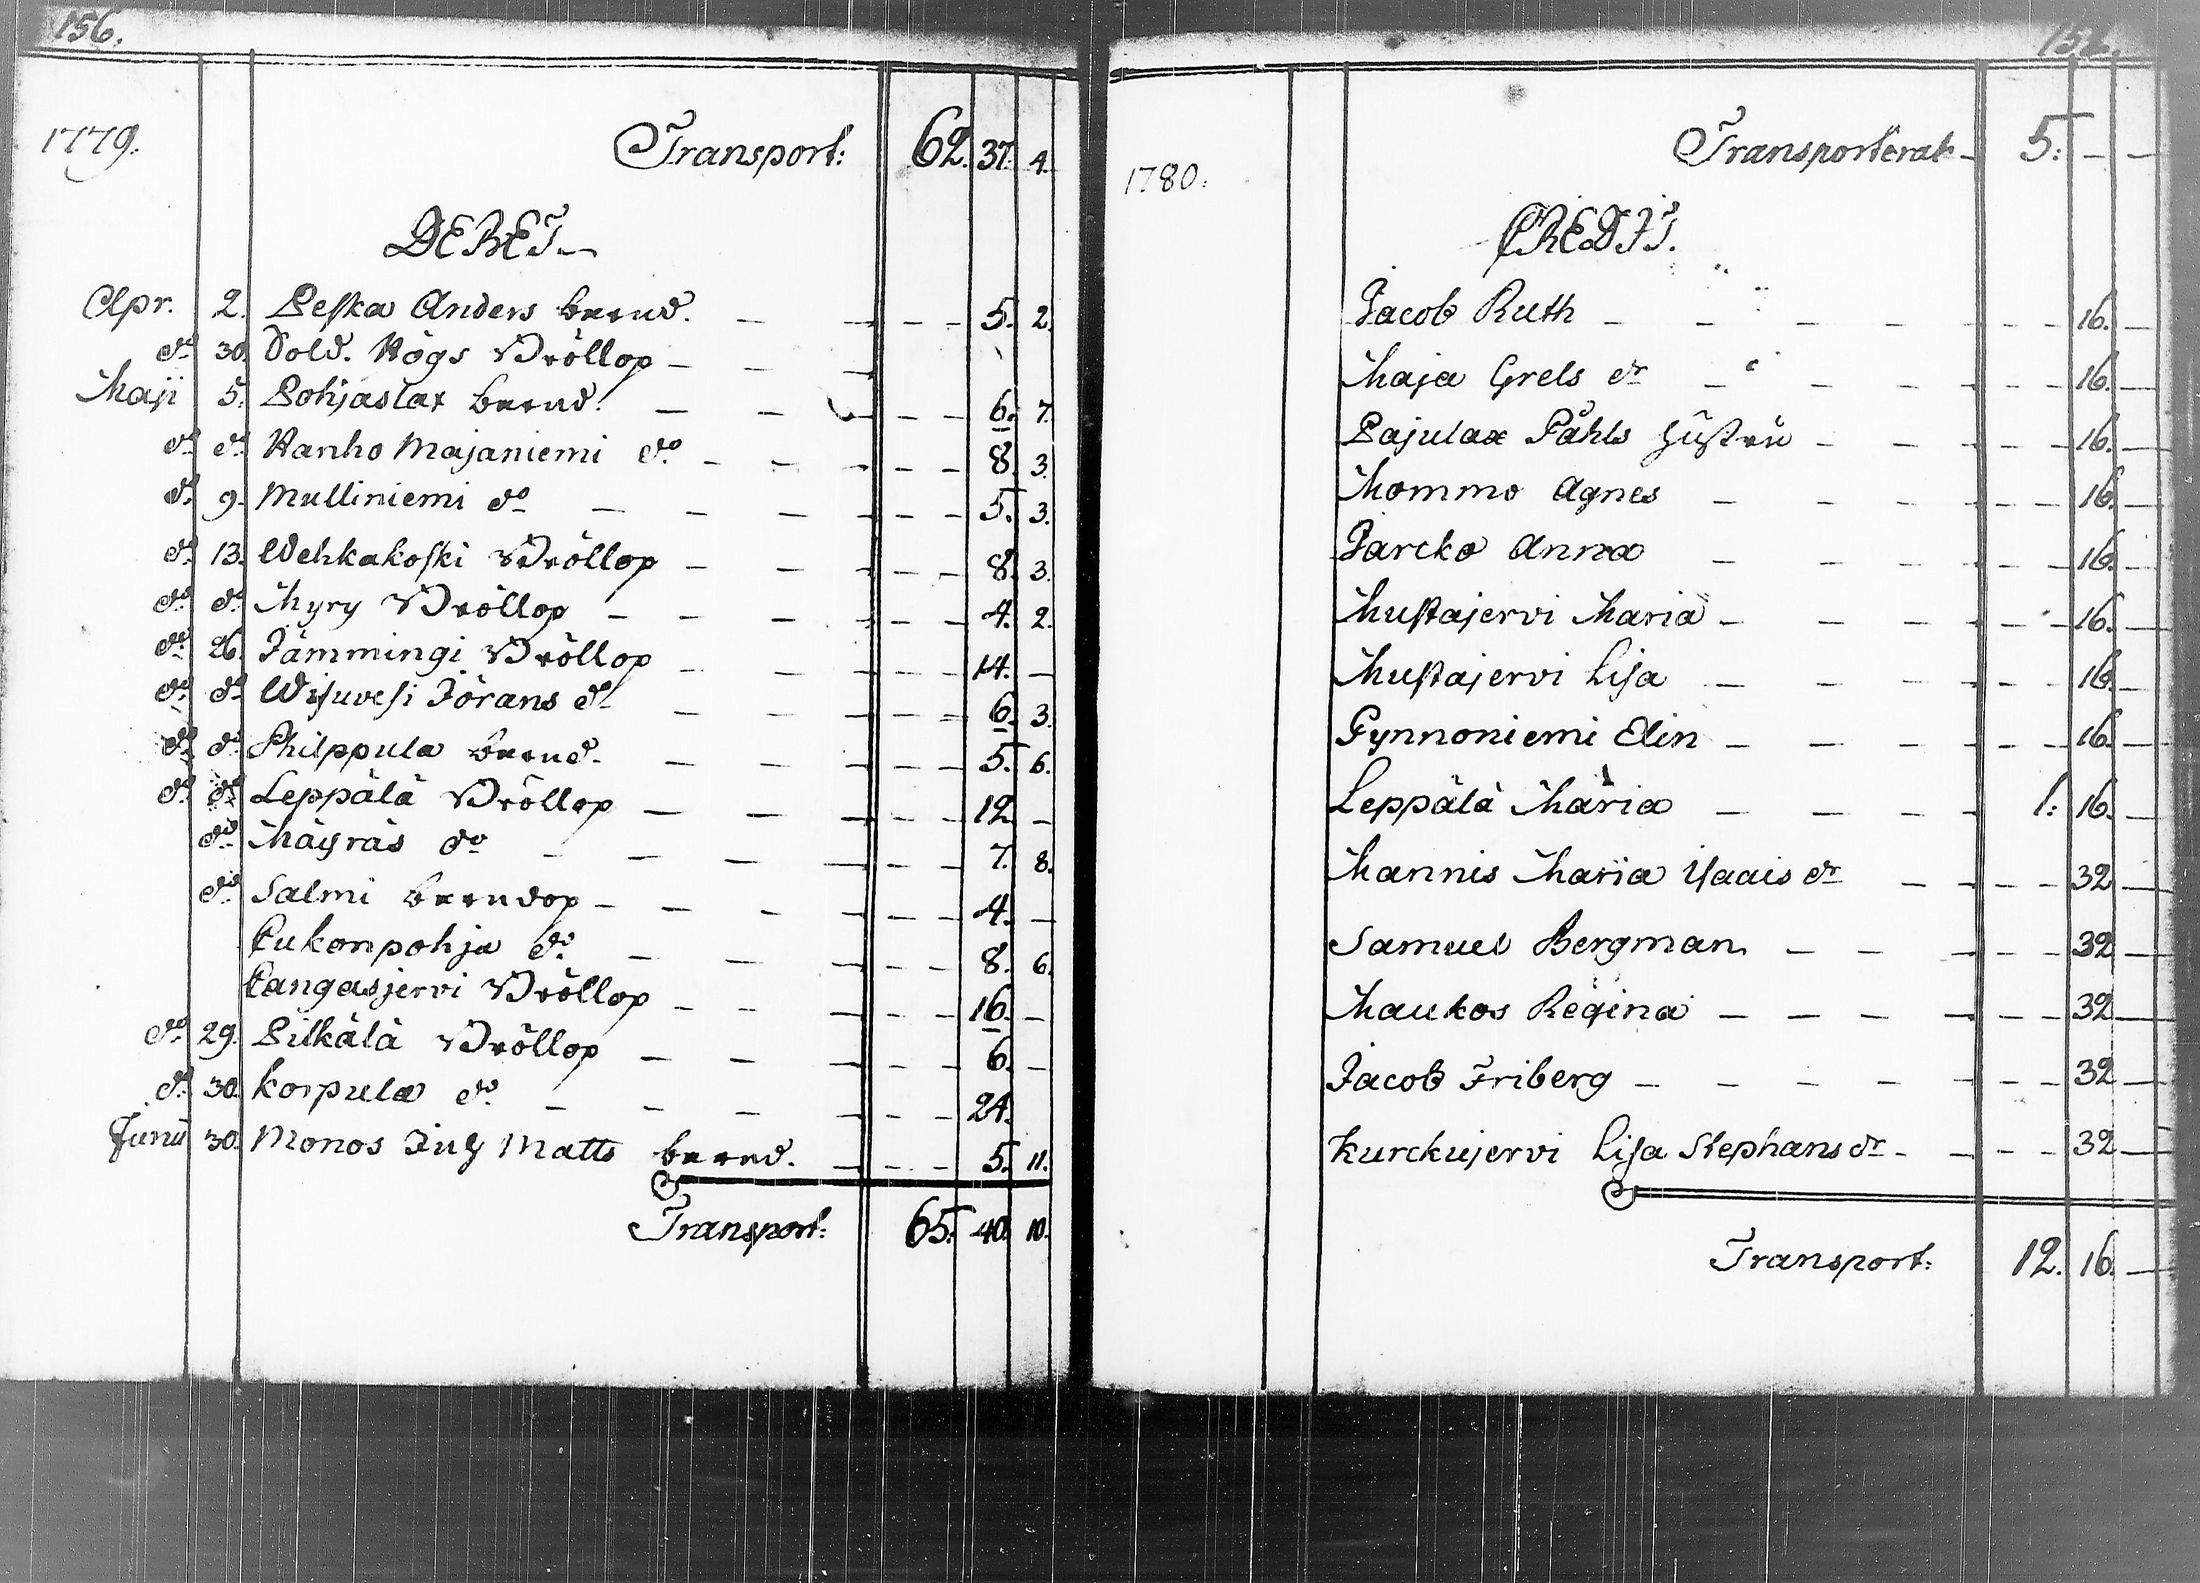 156.
1779. Transport: 62. 37. 4.
DEBET
Apr. 2. Peska Anders barnd. 5. 2.
do 30. Sold. Högs Bröllop
Maji 5. Pohjaslax barnd. 6. 7.
do do Hanho Majaniemi do 8. 3.
do 9. Mulliniemi do 5. 3.
do 13. Wehkakoski Bröllop 8. 3.
do do Myry Bröllop 4. 2.
do 26. Jämmingi Bröllop 14. —
do do Wisuvesi Jörans do 6. 3.
do do Philppula barnd. 5. 6.
do do Leppälä Bröllop 12 —
do Mäyräs do 7. 8.
do Salmi barndop 4. —
Lukonpohja do 8. 6.
Kangasjervi Bröllop 16. —
do 29. Pilkälä Bröllop 6. —
do 30. Korpula do 24.
Junii 30. Monos Matts barnd. 5. 11.
Transport: 65. 40. 10.
Transporterat 5. — —
1780.
CREDIT.
Jacob Ruth 16. —
Maja Grels dr 16. —
Pajulax Påhls hustru 16. —
Mommo Agnes 16. —
Jarcko Anna 16. —
Mustajervi Maria 16. —
Mustajervi Lisa 16. —
Pynnoniemi Elin 16. —
Leppälä Maria 1: 16. —
Mannis Maria Isaacs dr 32 —
Samuel Bergman 32 —
Maukos Regina 32 —
Jacob Friberg 32 —
Kurckujervi Lisa Stephans dr 32 —
Transport: 12. 16. —